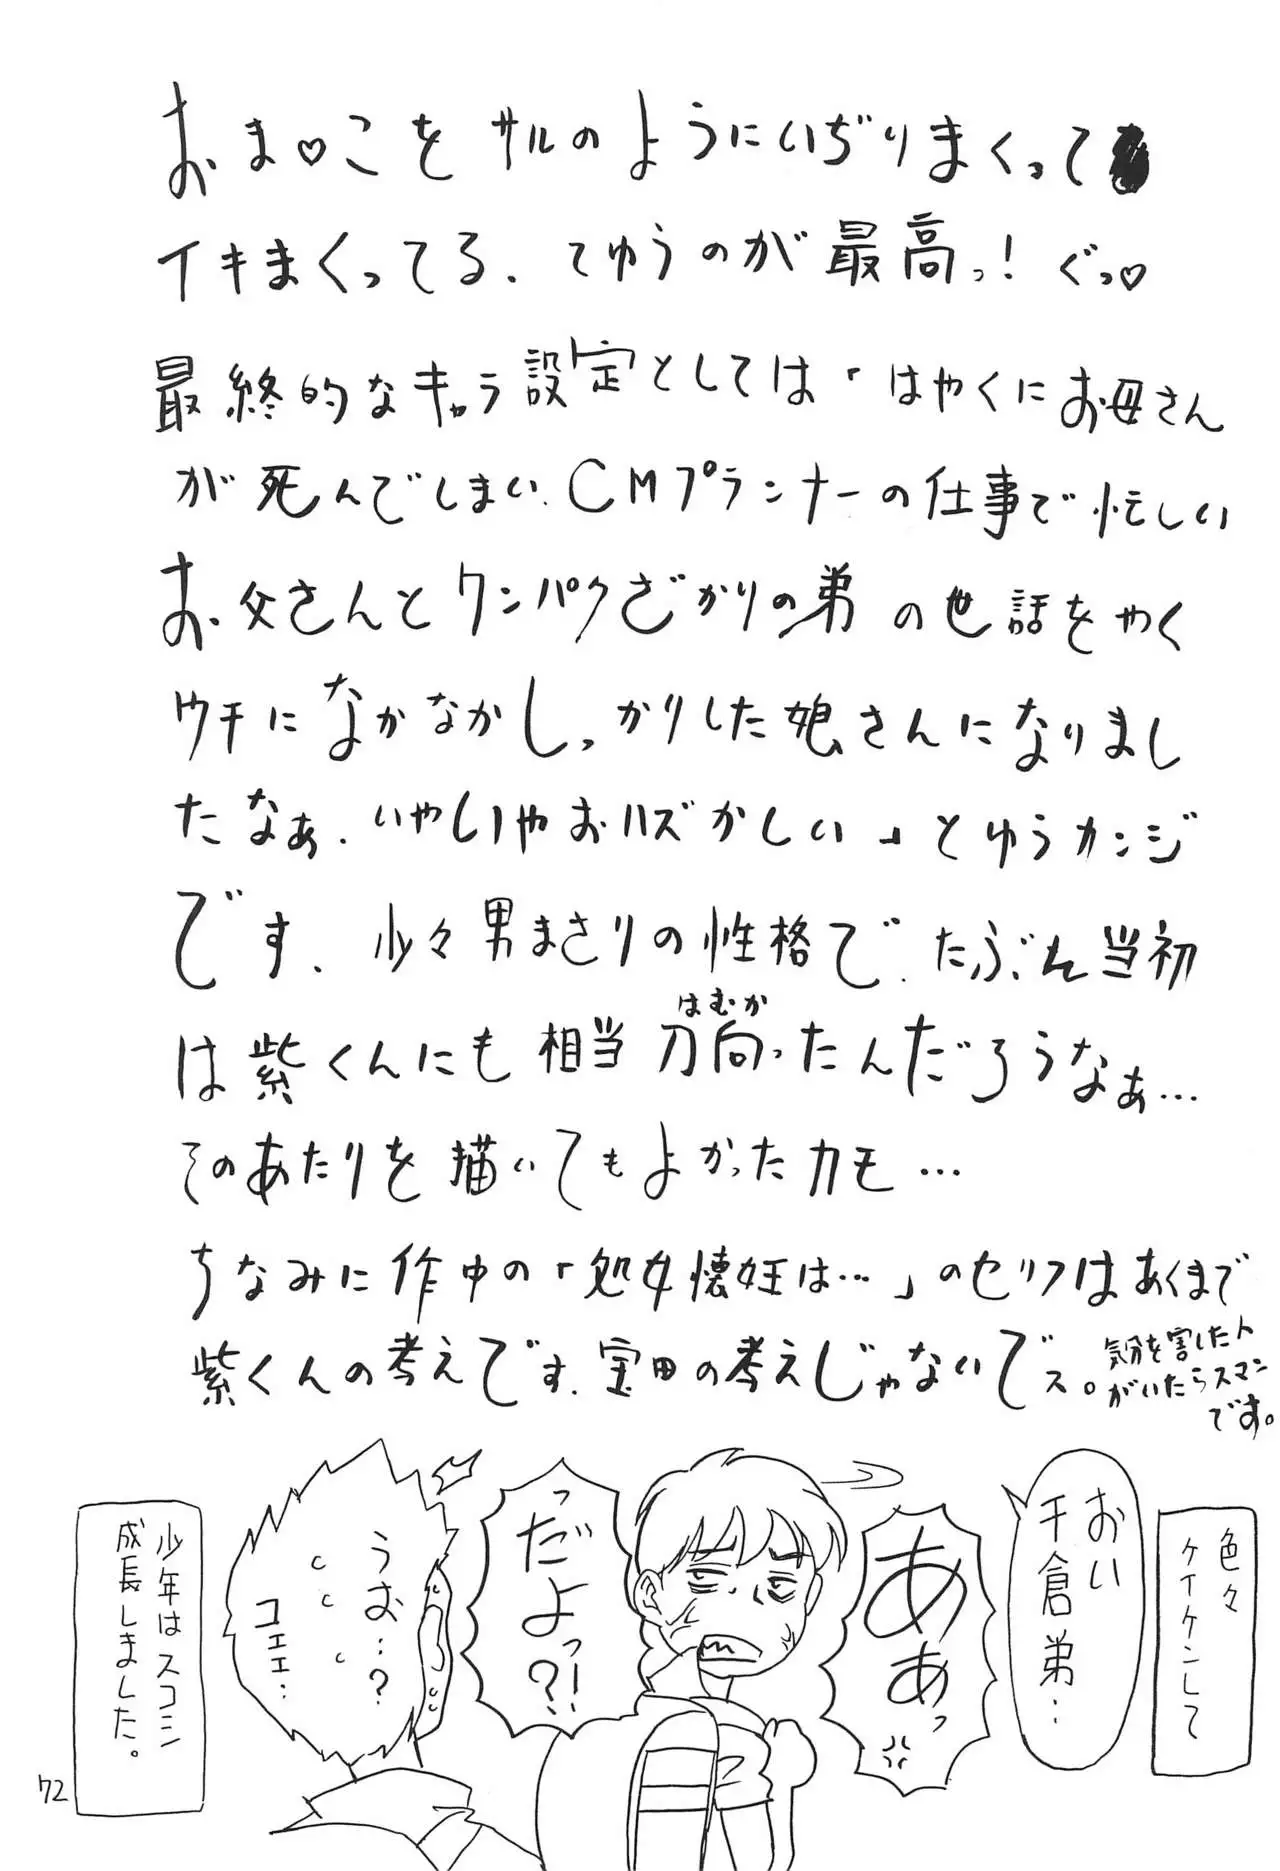 おま♡こを サルのようにいぢりまくって
イキまくってる、てゆうのが最高っ！ぐっ♡
最終的なキャラ設定としては「はやくにお母さん
が死んでしまい、CMプランナーの仕事で忙しい
お父さんとワンパクざかりの弟の世話をやく
ウチになかなかしっかりした娘さんになりまし
たなぁ、いやしいやおハズかしい」とゆうカンジ
です、少々男まさりの性格で、たぶん当初
はむか
は紫くんにも相当刀向ったんだろうなぁ…
そのあたりを描いてもよかったカモ…
ちなみに作中の「処女懐妊は…」のセリフはあくまで
紫くんの考えです、宝田の考えじゃないでス。
気分を害した人
がいたらスマン
です。
色々
ケイケンして
おい
千倉弟…
あぁっ
っだよっ?!
うお…?
コエェ…
少年はスコシ
成長しました。
72